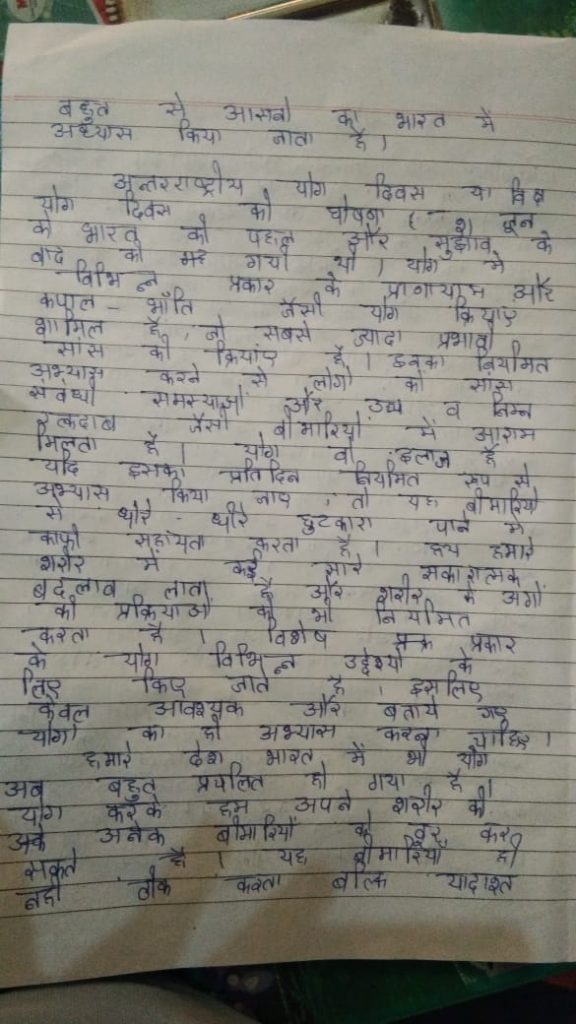 बहुत से आसनों का भारत में
अभ्यास किया जाता है।
अन्तरराष्ट्रीय योग दिवस या विश्व
योग दिवस की घोषणा ( 21 जून
को भारत की पहल और सुझाव के
बाद की गयी थी। योग में
विभिन्न प्रकार के प्राणायाम और
कपाल - भाँति जैसी योग क्रियाएं
शामिल है, जो सबसे ज्यादा प्रभावी
सांस की क्रियाएं है। इनका नियमित
अभ्यास करने से लोगों को सांस
संबंधी समस्याओं और उच्च व निम्न
रक्तदाब जैसी बीमारियों में आराम
मिलता है। योग वो इलाज है
यदि इसका प्रतिदिन नियमित रूप से
अभ्यास किया जाए, तो यह बीमारियों
से धीरे - धीरे छुटकारा पाने में
काफी सहायता करता है। हमारे
शरीर में कई सारे सकारात्मक
बदलाव लाता है और शरीर के अंगों
की प्रक्रियाओं को भी नियमित
करता है। विशेष प्रकार
के योग विभिन्न उद्देश्यों के
लिए किए जाते है, इसलिए
केवल आवश्यक और बताये गए
योगों का ही अभ्यास करना चाहिए।
हमारे देश भारत में भी योग
अब बहुत प्रचलित हो गया है।
योग करके हम अपने शरीर की
अनेक बीमारियों को दूर कर
सकते है। यह बीमारियाँ ही
नही ठीक करता बल्कि यादाश्त